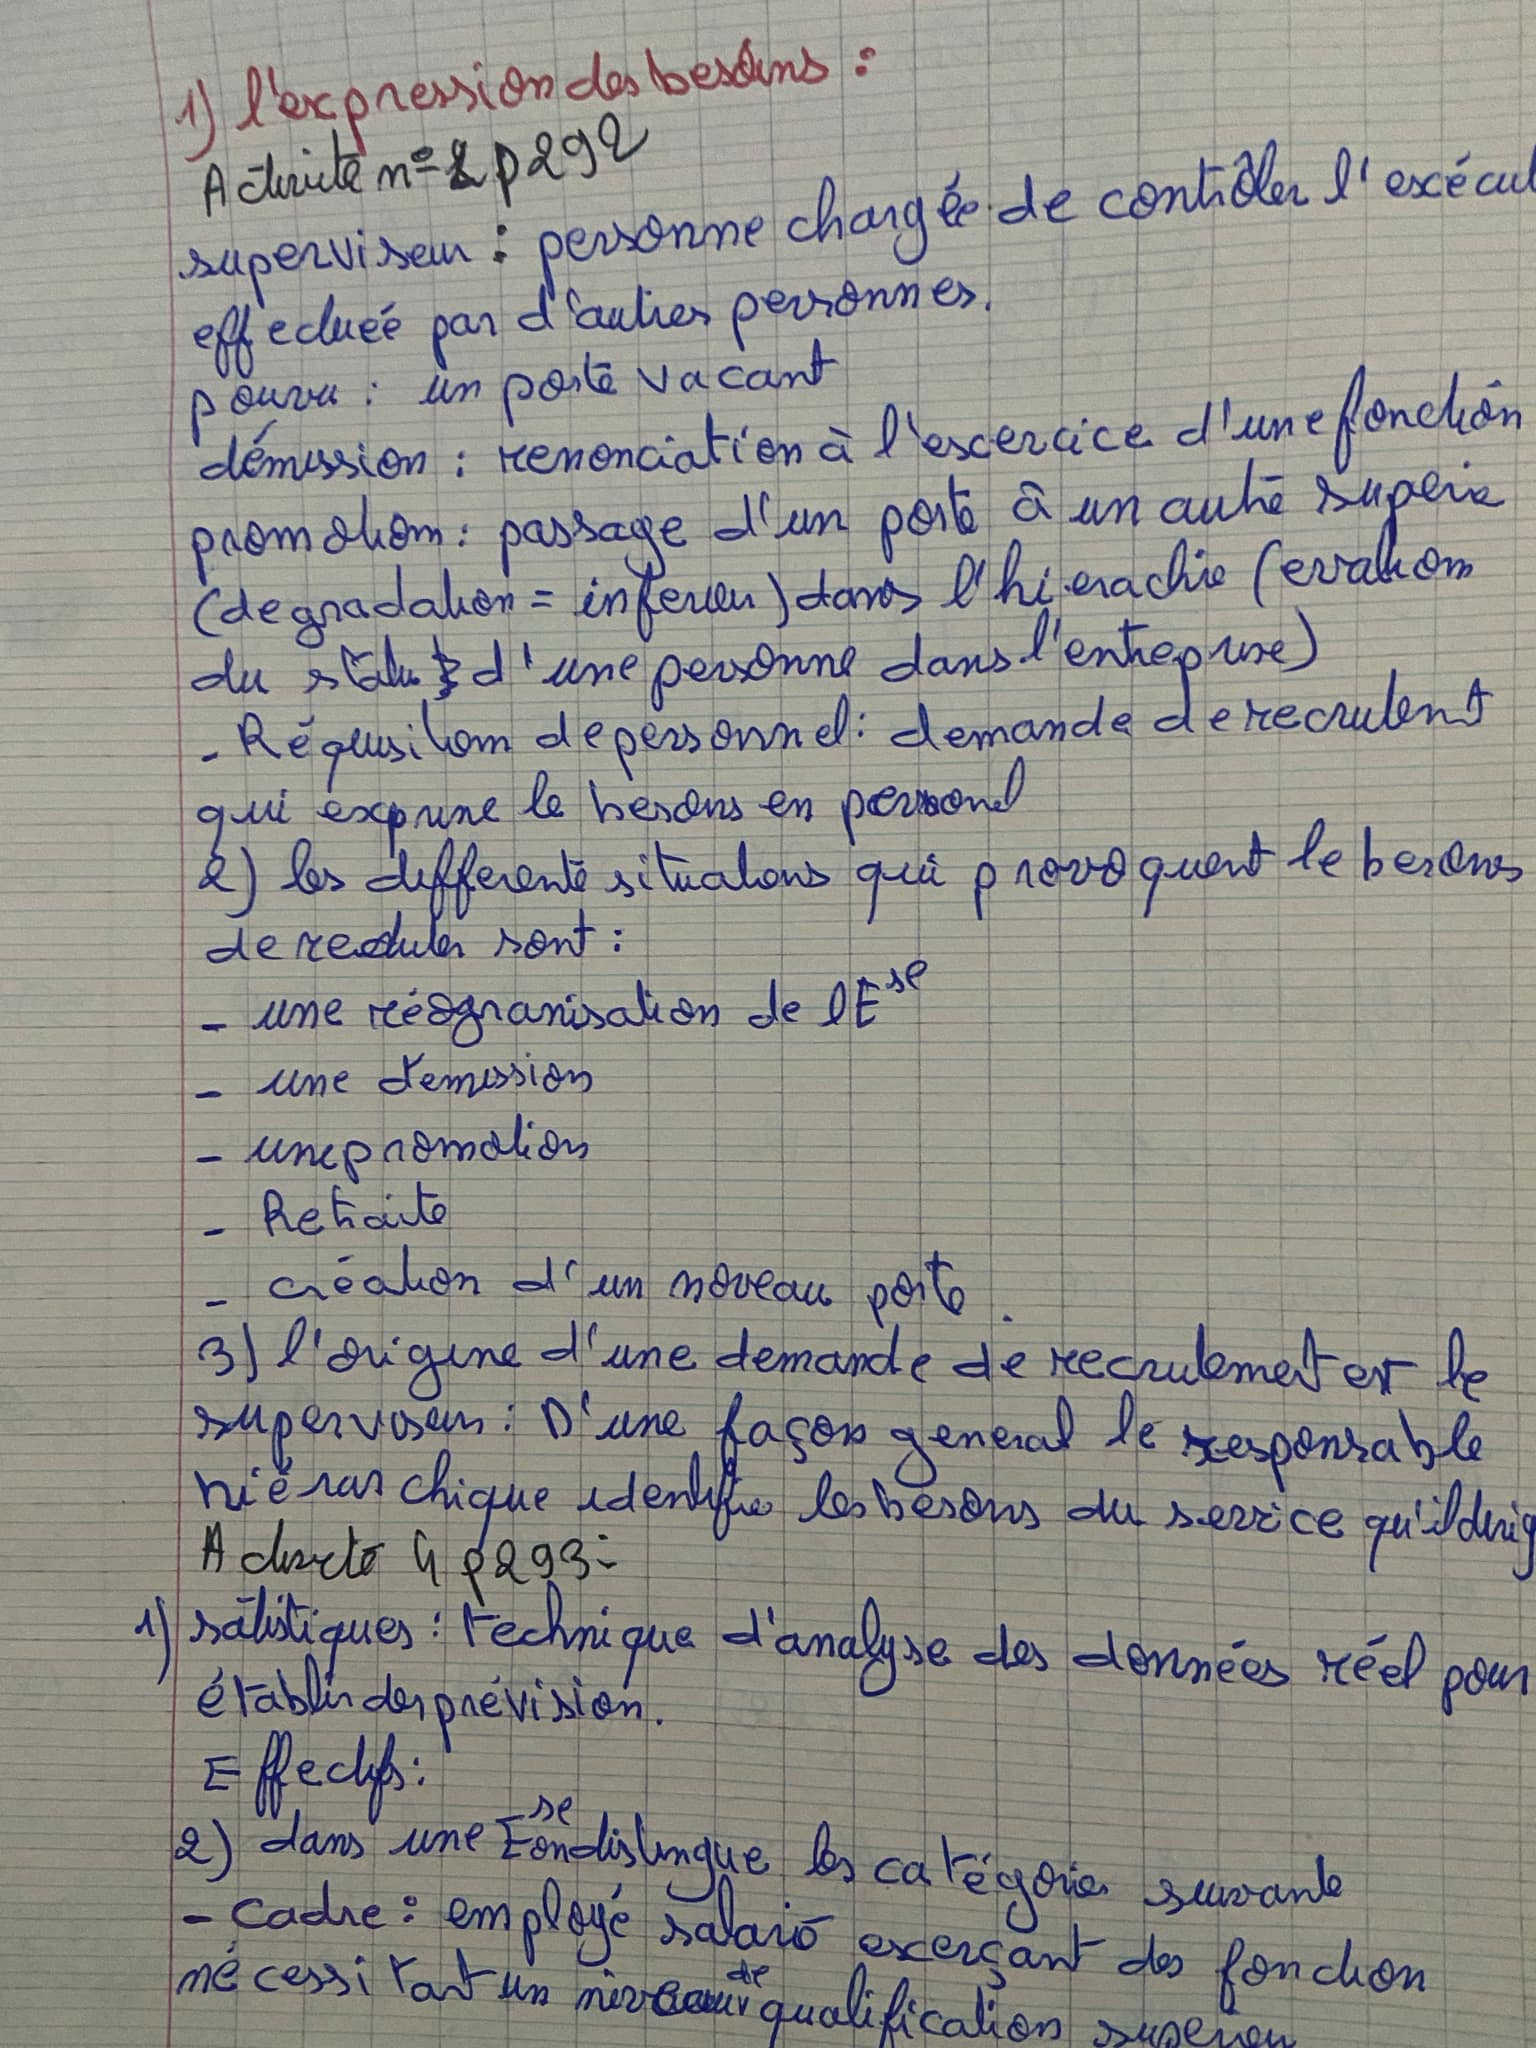 1) l'expression des besoins :
Activité n=2 p292
superviseur : personne chargée de contrôler l'exécut
effectuée par d'autres personnes.
pourvu : un poste vacant
démission : renonciation à l'excercice d'une fonction
promotion : passage d'un poste à un autre superie
(degradation = inferieu) dans l'hierachie (
du statut d'une personne dans l'entreprise)
- Réquisition de personnel : demande de recrutent
qui exprime le besoins en personel
2) les differente situations qui provoquent le besoins
de recruter sont :
- une réogranisation de l'Ese
- une démission
- une promotion
- Retraite
- création d'un noveau poste.
3) l'origine d'une demande de recrutement est le
superviseur : D'une façon general le responsable
hiérarchique identifie les besoins du service qu'il dirig
Activité 4 p293 :
1) satistiques : technique d'analyse des données réel pour
établir des prévision.
Effectifs :
2) dans une Ese on distingue les catégories suivante
- Cadre : employé salarié excerçant des fonction
nécessitant un niveau de qualification superieu